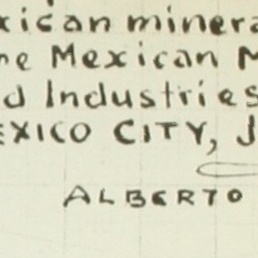 xican minera
he Mexican M
d Industries
EXICO CITY, J
ALBERTO